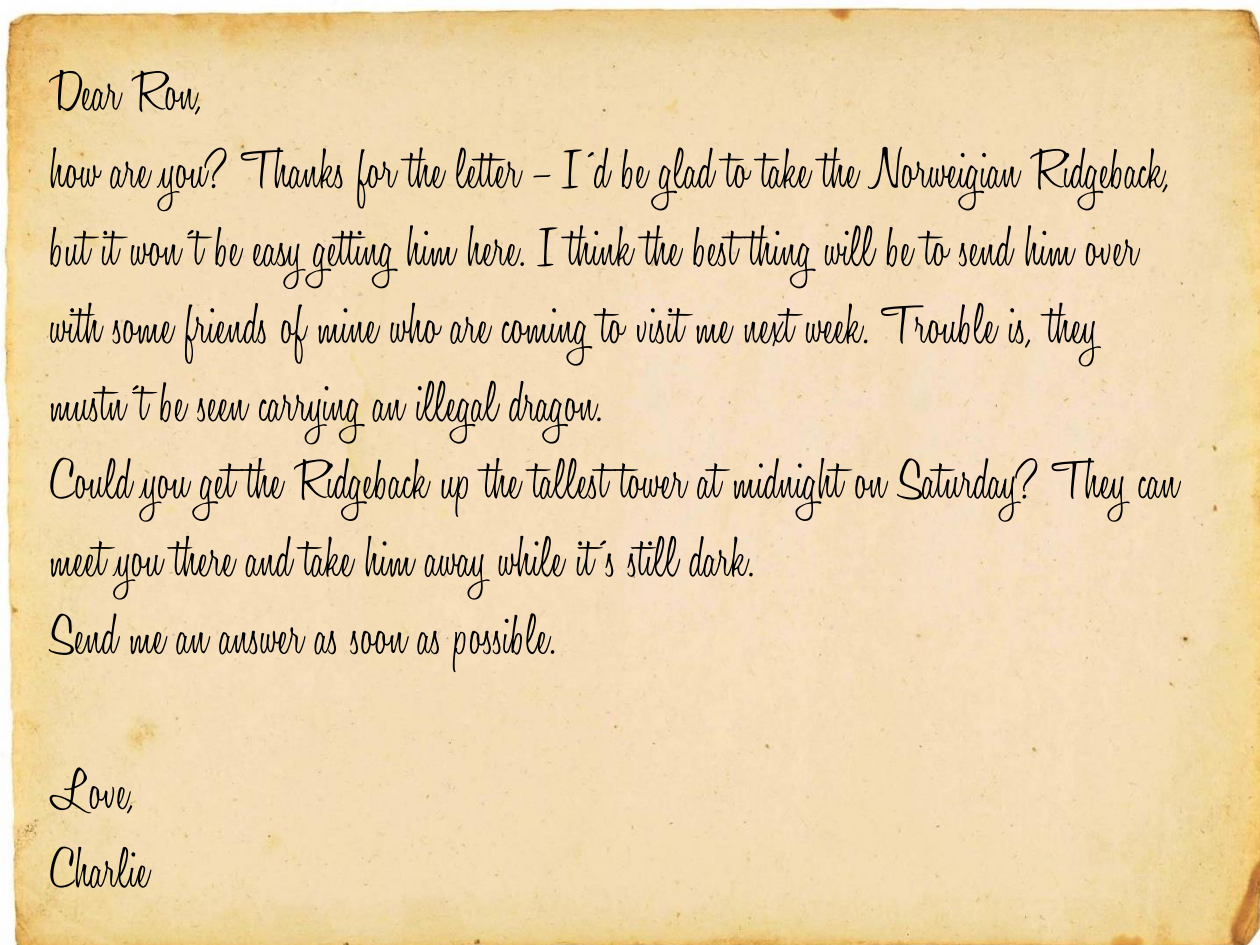 Dear Ron,
how are you? Thanks for the letter – I´d be glad to take the Norweigian Ridgeback,
but it won´t be easy getting him here. I think the best thing will be to send him over
with some friends of mine who are coming to visit me next week. Trouble is, they
mustn´t be seen carrying an illegal dragon.
Could you get the Ridgeback up the tallest tower at midnight on Saturday? They can
meet you there and take him away while it´s still dark.
Send me an answer as soon as possible.
Love,
Charlie